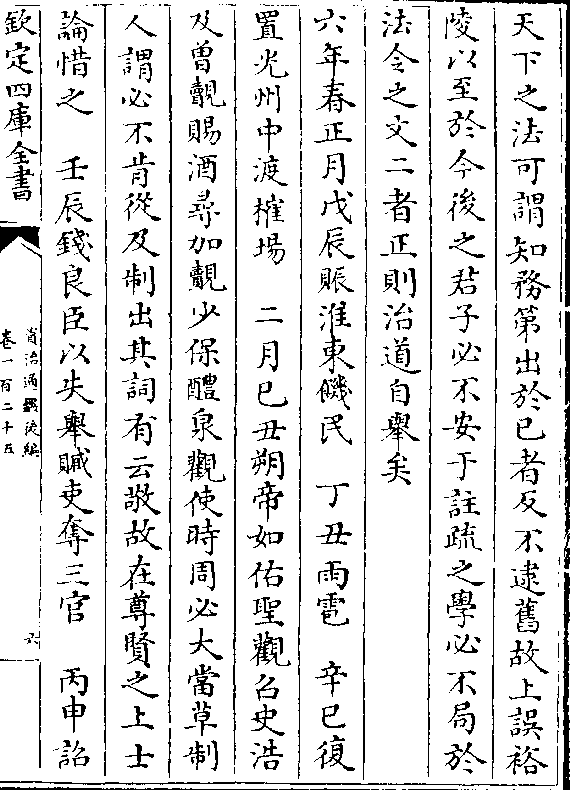 天下之法可謂知務第出於已者反不逮舊故上誤裕
陵以至於今後之君子必不安于註疏之學必不局於
法令之文二者正則治道自舉矣
六年春正月戊辰賑淮東饑民　丁丑雨雹　辛巳復
置光州中渡榷場　二月己丑朔帝如佑聖觀召史浩
及曾覿賜酒尋加覿少保醴泉觀使時周必大當草制
人謂必不肯從及制出其詞有云敬故在尊賢之上士
論惜之　壬辰錢良臣以失舉贓吏奪三官　丙申詔
欽定四庫全書
資治通鑑後編
卷一百二十五
六